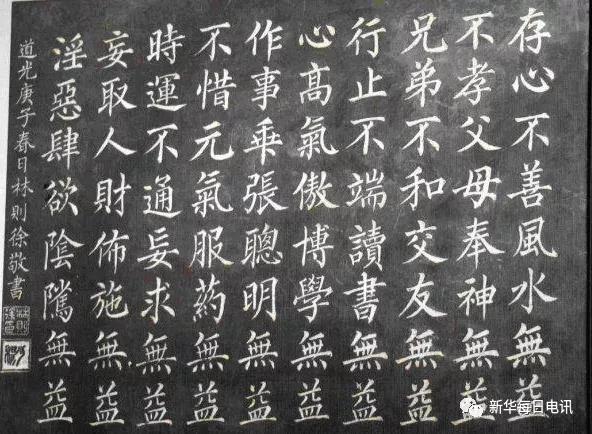 存心不善風水無益
不孝父母奉神無益
兄弟不和交友無益
行止不端讀書無益
心高氣傲博學無益
作事乖張聰明無益
不惜元氣服藥無益
時運不通妄求無益
妄取人財佈施無益
淫惡肆欲陰騭無益
道光庚子春日林則徐敬書
新华每日电讯